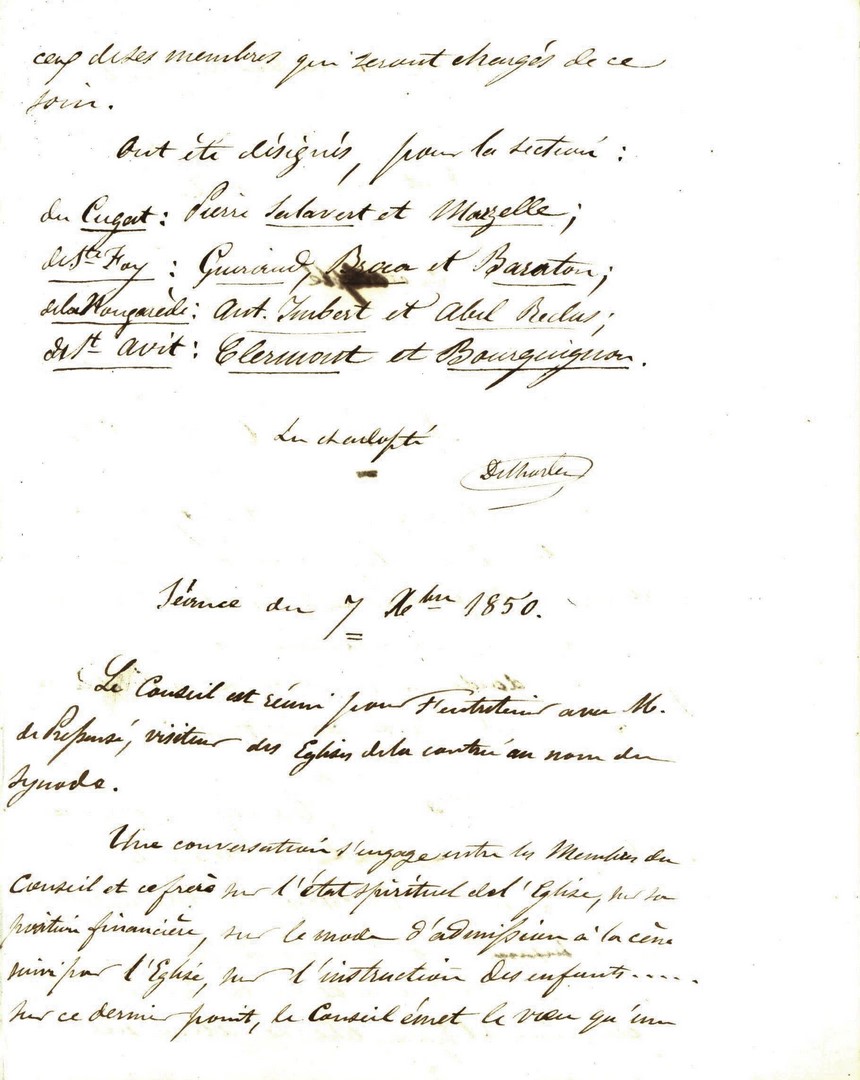 ceux de ses membres qui seront chargés de ce
soin.
Ont été désignés, pour la section :
du Cugat : Pierre Salavert et Mazelle ;
de Ste Foy : et Baraton ;
de la : Ant. Imbert et Abel Reclus ;
de St Avit : Clermont et Bourguignon.
Lu et adopté
Séance du 7 Xbre 1850.
Le Conseil est réuni pour s'entretenir avec M.
de Pressensé, visiteur des Eglises de la contrée au nom du
Synode.
Une conversation s'engage entre les Membres du
Conseil et ce frère sur l'état spirituel de l'Eglise, sur sa
position financière, sur le mode d'admission à la cène
suivi par l'Eglise, sur l'instruction des enfants.....
sur ce dernier point, le Conseil émet le vœu qu'un